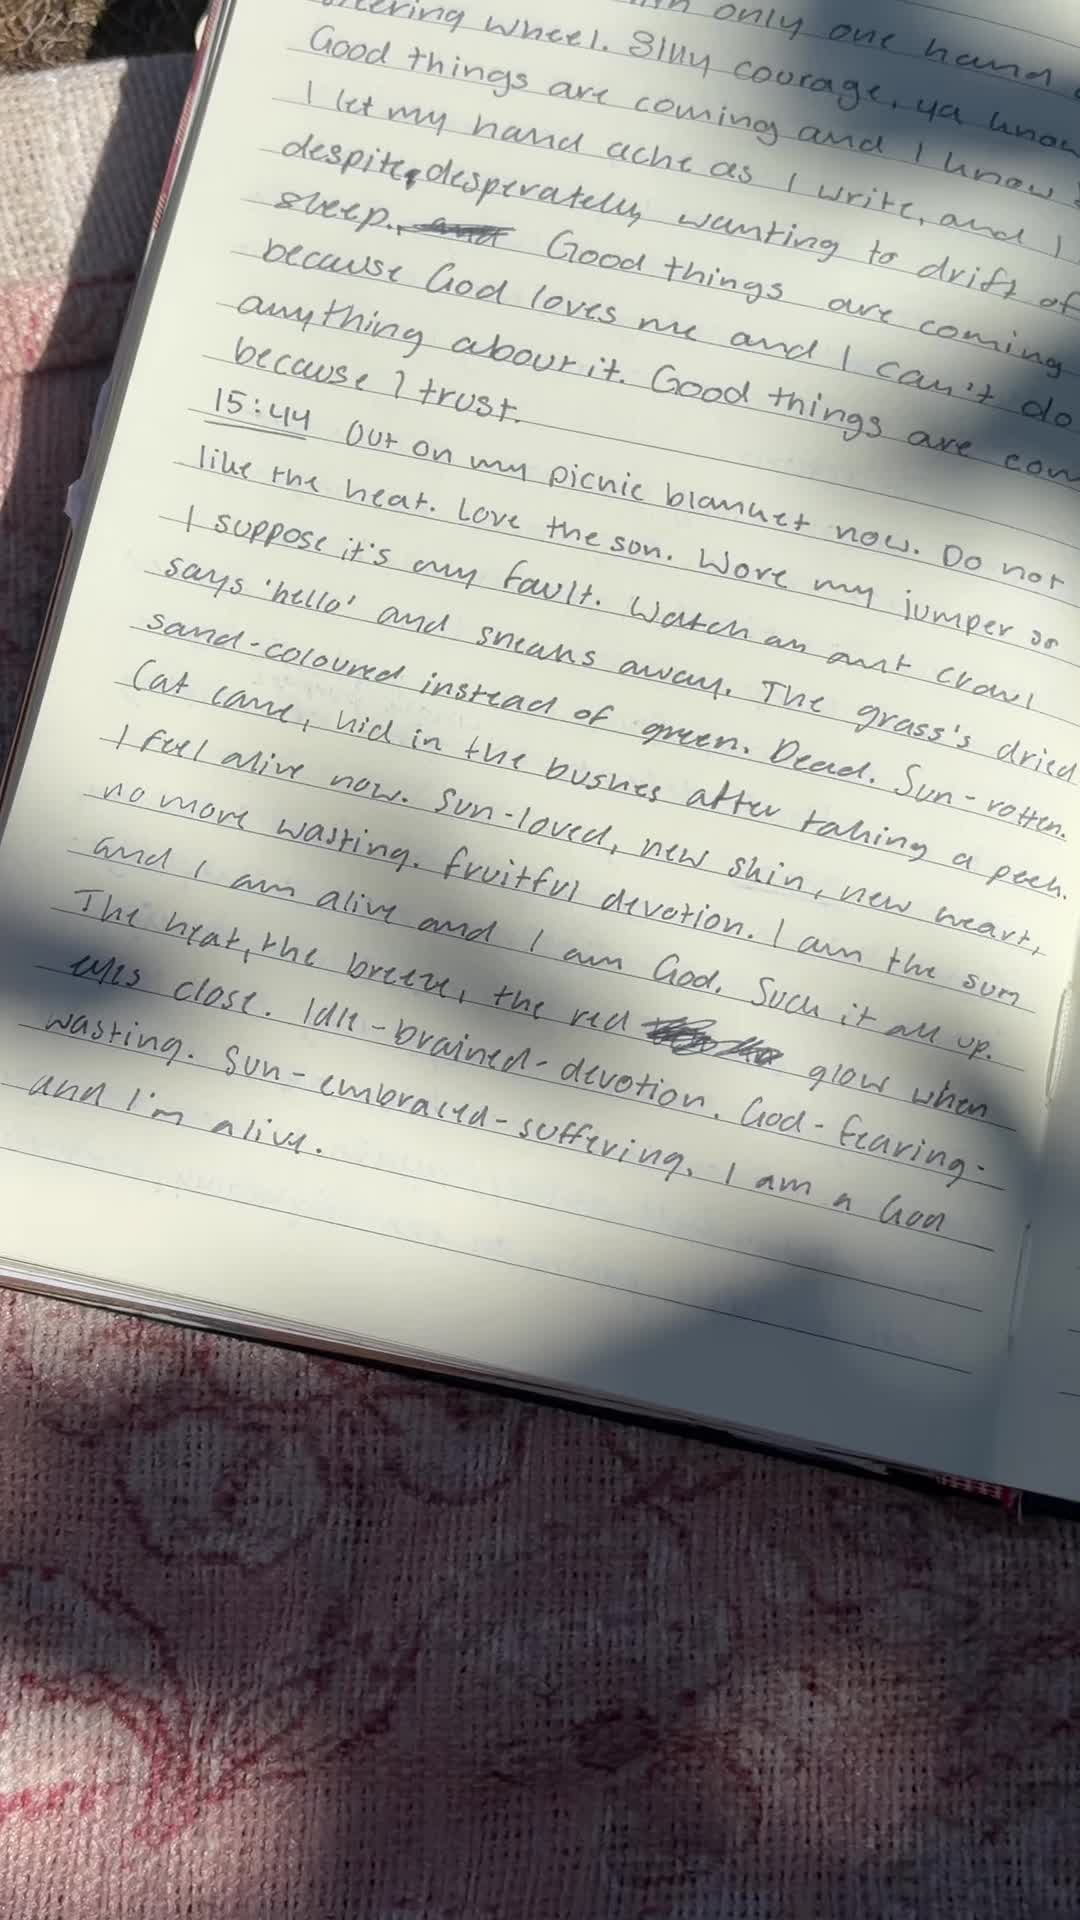 only one hand
wheel. Silly courage, ya know
Good things are coming and I know
I let my hand ache as I write, and I
despite, desperately wanting to drift of
sleep. Good things are coming
because God loves me and I can't do
anything about it. Good things are com
because I trust.
15:44 Out on my picnic blanket now. Do not
like the heat. Love the son. Wore my jumper so
I suppose it's my fault. Watch an ant crawl
says 'hello' and sneaks away. The grass's dried
sand-coloured instead of green. Dead. Sun-rotten.
Cat came, hid in the bushes after taking a peek.
I feel alive now. Sun-loved, new skin, new heart,
no more wasting. fruitful devotion. I am the sum
and I am alive and I am God. Suck it all up.
The heat, the breeze, the red glow when
eyes close. Idle-brained-devotion. God-fearing-
wasting. Sun-embraced-suffering. I am a God
and I'm alive.